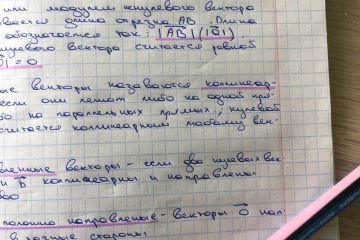 или модулем ненулевого вектора
вается длина отрезка AB. Длина
обозначается так: |AB| (|a|)
улевого вектора считается равной
0| = 0
ые векторы называются коллинеар-
если они лежат либо на одной пря-
бо на параллельных прямых; нулевой
считается коллинеарным любому век-
вленные векторы - если два нулевых век-
и b коллинеарны и направлены
во
положно направленые - векторы 0 кол
в разные стороны